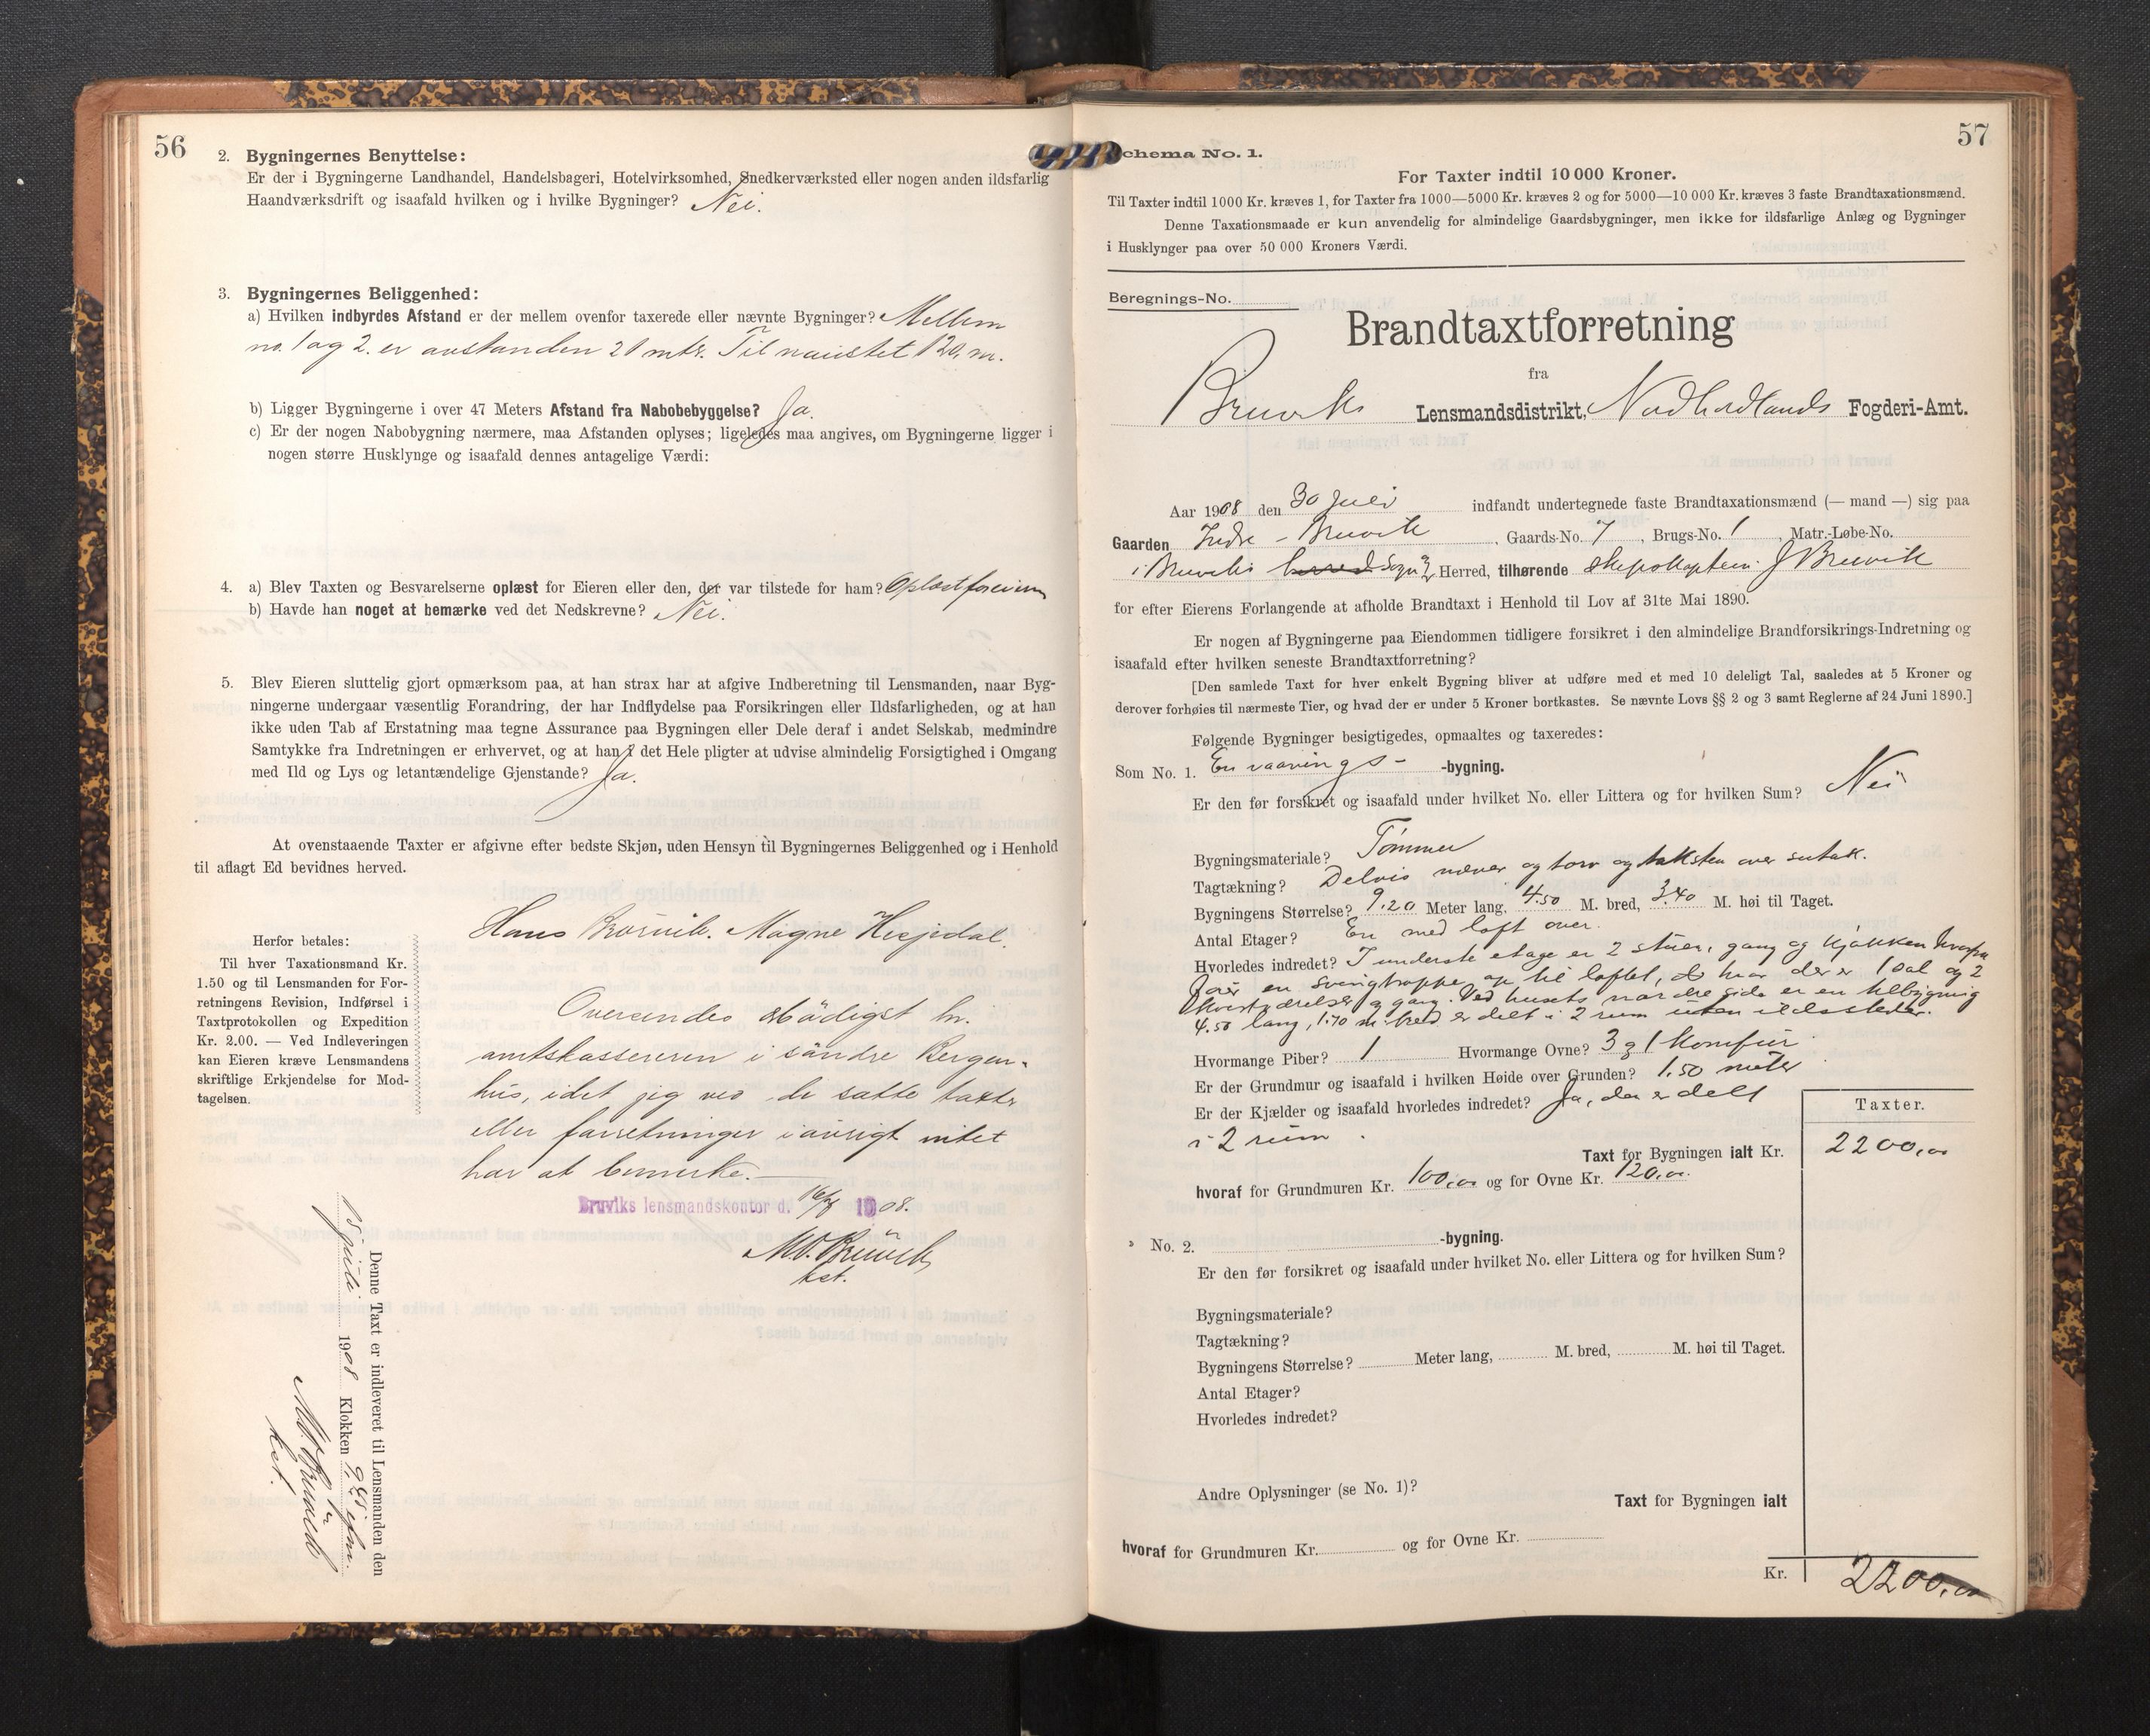 56
2. Bygningernes Benyttelse:
Er der i Bygningerne Landhandel, Handelsbageri, Hotelvirksomhed, Snedkerværksted eller nogen anden ildsfarlig
Haandværksdrift og isaafald hvilken og i hvilke Bygninger? Nei.
3. Bygningernes Beliggenhed:
a) Hvilken indbyrdes Afstand er der mellem ovenfor taxerede eller nævnte Bygninger? Mellem
no. 1 og 2. er avstanden 21 mtr. Til naustet 120 m.
b) Ligger Bygningerne i over 47 Meters Afstand fra Nabobebyggelse? Ja.
c) Er der nogen Nabobygning nærmere, maa Afstanden oplyses; ligeledes maa angives, om Bygningerne ligger i
nogen større Husklynge og isaafald dennes antagelige Værdi:
4. a) Blev Taxten og Besvarelserne oplæst for Eieren eller den, der var tilstede for ham? Oplæst for eieren
b) Havde han noget at bemærke ved det Nedskrevne? Nei.
5. Blev Eieren sluttelig gjort opmærksom paa, at han strax har at afgive Indberetning til Lensmanden, naar Byg-
ningerne undergaar væsentlig Forandring, der har Indflydelse paa Forsikringen eller Ildsfarligheden, og at han
ikke uden Tab af Erstatning maa tegne Assurance paa Bygningen eller Dele deraf i andet Selskab, medmindre
Samtykke fra Indretningen er erhvervet, og at han i det Hele pligter at udvise almindelig Forsigtighed i Omgang
med Ild og Lys og letantændelige Gjenstande? Ja.
At ovenstaaende Taxter er afgivne efter bedste Skjøn, uden Hensyn til Bygningernes Beliggenhed og i Henhold
til aflagt Ed bevidnes herved.
Hans Brūvik. Magne Hesjedal.
Herfor betales:
Til hver Taxationsmand Kr.
1.50 og til Lensmanden for For-
retningens Revision, Indførsel i
Taxtprotokollen og Expedition
Kr. 2.00. — Ved Indleveringen
kan Eieren kræve Lensmandens
skriftlige Erkjendelse for Mod-
tagelsen.
Oversendes ærbødigst hr.
amtskassereren i søndre Bergen-
hus, idet jeg ved de satte takster
eller forretninger iøvrigt intet
har at bemerke.—
Bruviks lensmandskontor d. 16/8 1908.
M. Brūvik
kst.
Denne Taxt er indleveret til Lensmanden den
25 juli 1908 Klokken 9,45 efm.
M. Brūvik
kst.
57
Schema No. 1.
For Taxter indtil 10 000 Kroner.
Til Taxter indtil 1000 Kr. kræves 1, for Taxter fra 1000—5000 Kr. kræves 2 og for 5000—10 000 Kr. kræves 3 faste Brandtaxationsmænd.
Denne Taxationsmaade er kun anvendelig for almindelige Gaardsbygninger, men ikke for ildsfarlige Anlæg og Bygninger
i Husklynger paa over 50 000 Kroners Værdi.
Beregnings-No.
Brandtaxtforretning
fra
Bruviks Lensmandsdistrikt, Nordhordlands Fogderi-Amt.
Aar 1908 den 30 Juli indfandt undertegnede faste Brandtaxationsmænd (— mand —) sig paa
Gaarden Indre - Bruvik, Gaards-No. 7, Brugs-No. 1, Matr.-Løbe-No.
i Bruviks herred Sogn og Herred, tilhørende skipskaptein J Bruvik
for efter Eierens Forlangende at afholde Brandtaxt i Henhold til Lov af 31te Mai 1890.
Er nogen af Bygningerne paa Eiendommen tidligere forsikret i den almindelige Brandforsikrings-Indretning og
isaafald efter hvilken seneste Brandtaxtforretning?
[Den samlede Taxt for hver enkelt Bygning bliver at udføre med et med 10 deleligt Tal, saaledes at 5 Kroner og
derover forhøies til nærmeste Tier, og hvad der er under 5 Kroner bortkastes. Se nævnte Lovs §§ 2 og 3 samt Reglerne af 24 Juni 1890.]
Følgende Bygninger besigtigedes, opmaaltes og taxeredes:
Som No. 1. En vaanings- -bygning.
Er den før forsikret og isaafald under hvilket No. eller Littera og for hvilken Sum? Nei
Bygningsmateriale? Tømmer
Tagtækning? Delvis næver og torv og taksten over sutak.
Bygningens Størrelse? 9.20 Meter lang, 4.50 M. bred, 3.40 M. høi til Taget.
Antal Etager? En med loft over.
Hvorledes indredet? I underste etage er 2 stuer, gang og kjøkken hvorfra
fører en svingtrappe op til loftet, hvor der er 1 sal og 2
kvistværelser og gang. Ved husets nordre side er en tilbygning
4.50 lang, 1.70 m. bred er delt i 2 rum uten ildssteder.
Hvormange Piber? 1 Hvormange Ovne? 3 og 1 komfūr
Er der Grundmur og isaafald i hvilken Høide over Grunden? 1.50 meter
Er der Kjælder og isaafald hvorledes indredet? Ja, den er delt
i 2 rum.
Taxter.
Taxt for Bygningen ialt Kr. 2200,00
hvoraf for Grundmuren Kr. 100,00 og for Ovne Kr. 120,00.
No. 2. -bygning.
Er den før forsikret og isaafald under hvilket No. eller Littera og for hvilken Sum?
Bygningsmateriale?
Tagtækning?
Bygningens Størrelse? Meter lang, M. bred, M. høi til Taget.
Antal Etager?
Hvorledes indredet?
Andre Oplysninger (se No. 1)?
Taxt for Bygningen ialt
hvoraf for Grundmuren Kr. og for Ovne Kr.
Kr. 2200,00